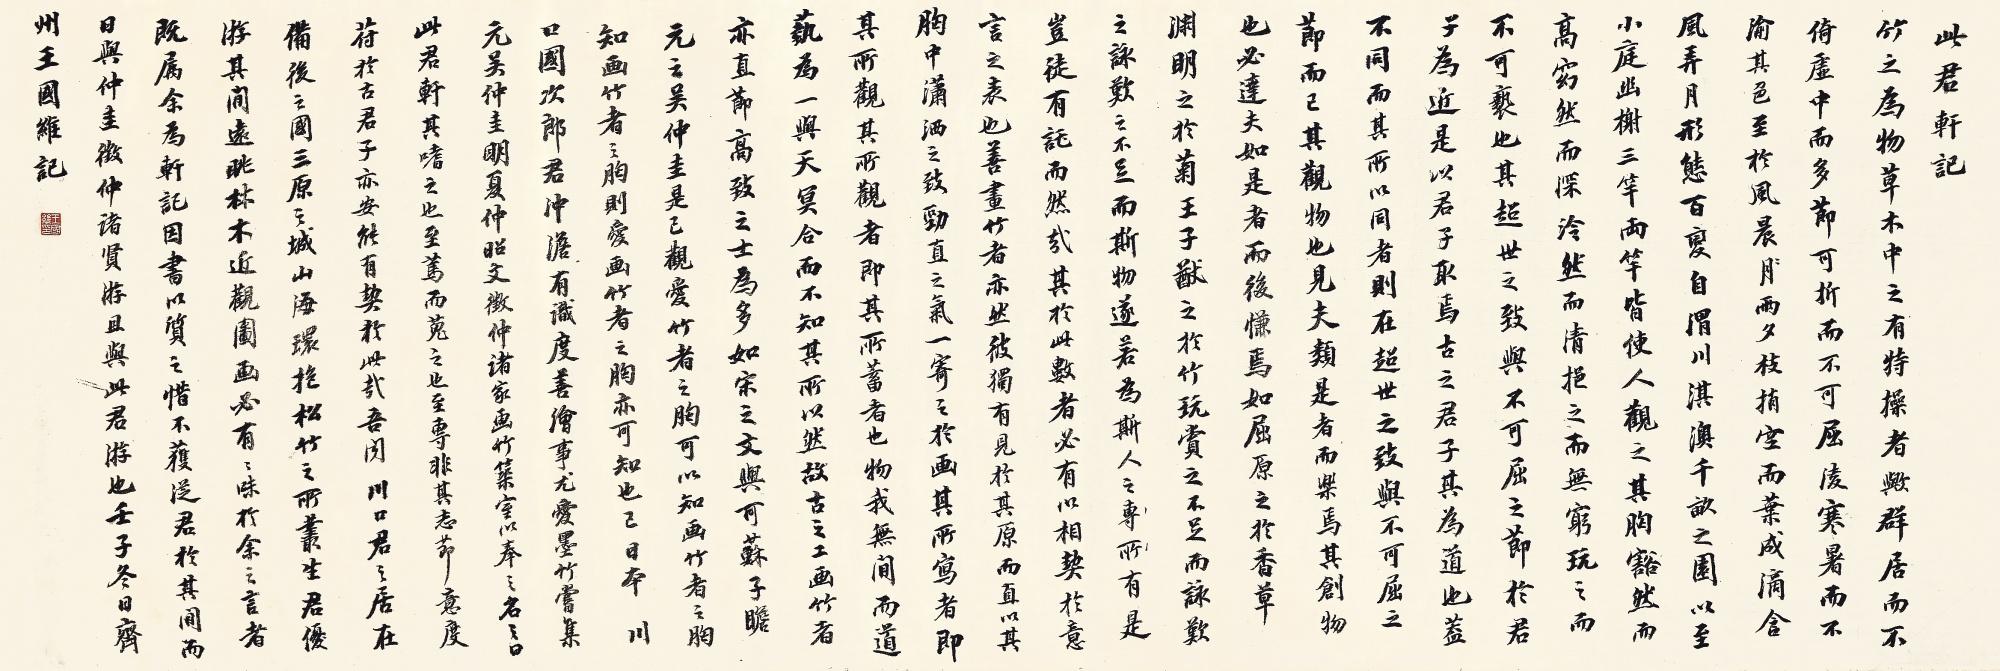 此君軒記
竹之為物草木中之有特操者歟群居而不
倚虛中而多節可折而不可屈凌寒暑而不
渝其色至於風晨月雨夕枝捎空而葉成滴含
風弄月形態百變自渭川淇澳千畝之園以至
小庭幽榭三竿兩竿皆使人觀之其胸豁然而
高窈然而深泠然而清挹之而無窮玩之而
不可褻也其超世之致與不可屈之節於君
子為近是以君子取焉古之君子其為道也蓋
不同而其所以同者則在超世之致與不可屈之
節而已其觀物也見夫類是者而樂焉其創物
也必達夫如是者而後慊焉如屈原之於香草
淵明之於菊王子猷之於竹玩賞之不足而詠歎
之詠歎之不足而斯物遂若為斯人之專所有是
豈徒有託而然哉其於此數者必有以相契於意
言之表也善畫竹者亦然彼獨有見於其原而直以其
胸中瀟洒之致勁直之氣一寄之於画其所寫者即
其所觀其所觀者即其所蓄者也物我無間而道
藝為一與天冥合而不知其所以然故古之工画竹者
亦直節高致之士為多如宋之文與可蘇子瞻
元之吴仲圭是已觀愛竹者之胸可以知画竹者之胸
知画竹者之胸則愛画竹者之胸亦可知也已日本 川
口國次郎君沖澹有識度善繪事尤愛墨竹嘗集
元吴仲圭明夏仲昭文徵仲諸家画竹築室以奉之名之曰
此君軒其嗜之也至篤而蒐之也至專非其志節意度
符於古君子亦安能有契於此哉吾聞 川口君之居在
備後之國三原之城山海環抱松竹之所叢生君優
游其間遠眺林木近觀圖画必有之味於余之言者
既属余為軒記因書以質之惜不獲從君於其間而
日與仲圭徵仲諸賢游且與此君游也壬子冬日齊
州王國維記